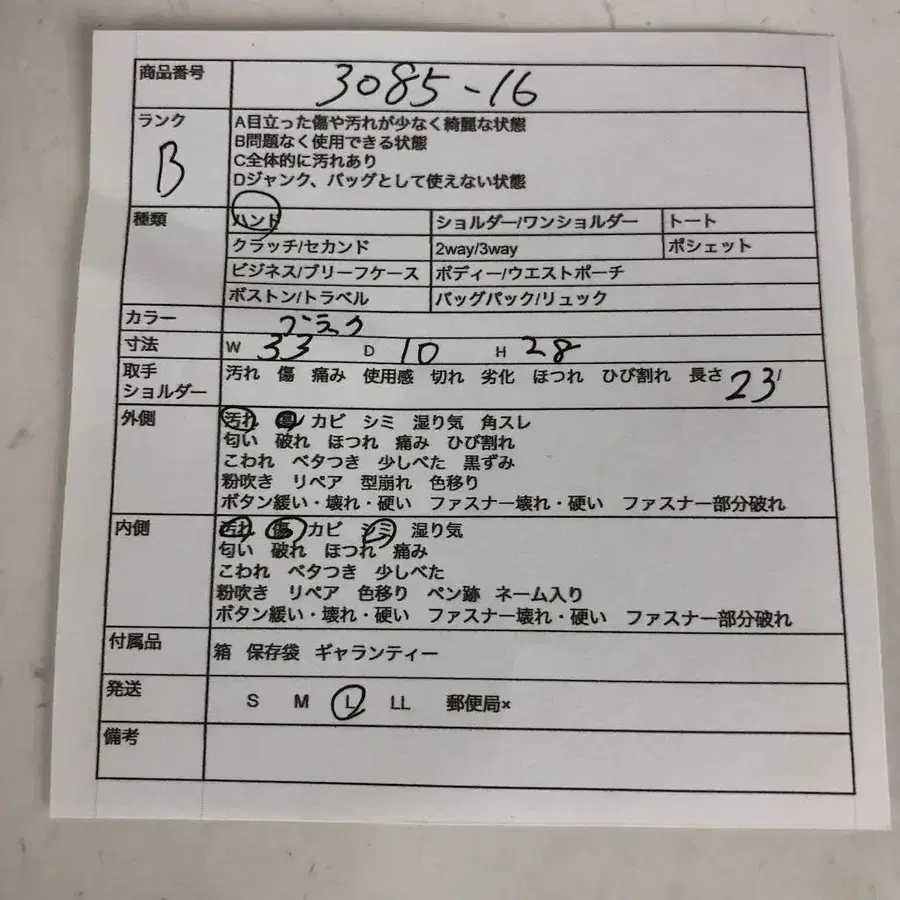 商品番号 3085-16
ランク B
A目立った傷や汚れが少なく綺麗な状態
B問題なく使用できる状態
C全体的に汚れあり
Dジャンク、バッグとして使えない状態
種類 ハンド ショルダー/ワンショルダー トート
クラッチ/セカンド 2way/3way ポシェット
ビジネス/ブリーフケース ボディー/ウエストポーチ
ボストン/トラベル バッグパック/リュック
カラー ブラック
寸法 W 33 D 10 H 28
取手 汚れ 傷 痛み 使用感 切れ 劣化 ほつれ ひび割れ 長さ 23
ショルダー
外側 汚れ 傷 カビ シミ 湿り気 角スレ
匂い 破れ ほつれ 痛み ひび割れ
こわれ ベタつき 少しべた 黒ずみ
粉吹き リペア 型崩れ 色移り
ボタン緩い・壊れ・硬い ファスナー壊れ・硬い ファスナー部分破れ
内側 汚れ 傷 カビ シミ 湿り気
匂い 破れ ほつれ 痛み
こわれ ベタつき 少しべた
粉吹き リペア 色移り ペン跡 ネーム入り
ボタン緩い・壊れ・硬い ファスナー壊れ・硬い ファスナー部分破れ
付属品 箱 保存袋 ギャランティー
発送 S M L LL 郵便局×
備考